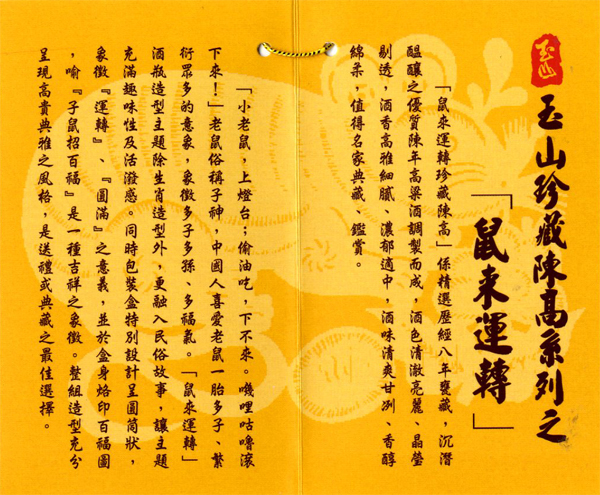 玉山
玉山珍藏陳高系列之
「鼠來運轉」
「鼠來運轉珍藏陳高」係精選歷經八年甕藏，沉潛
醞釀之優質陳年高粱酒調製而成，酒色清澈亮麗、晶瑩
剔透，酒香高雅細膩、濃郁適中，酒味清爽甘冽、香醇
綿柔，值得名家典藏、鑑賞。
「小老鼠，上燈台；偷油吃，下不來。嘰哩咕嚕滾
下來！」老鼠俗稱子神，中國人喜愛老鼠一胎多子、繁
衍眾多的意象，象徵多子多孫、多福氣。「鼠來運轉」
酒瓶造型主題除生肖造型外，更融入民俗故事，讓主題
充滿趣味性及活潑感。同時包裝盒特別設計呈圓筒狀，
象徵『運轉』、『圓滿』之意義，並於盒身烙印百福圖
，喻『子鼠招百福』是一種吉祥之象徵。整組造型充分
呈現高貴典雅之風格，是送禮或典藏之最佳選擇。